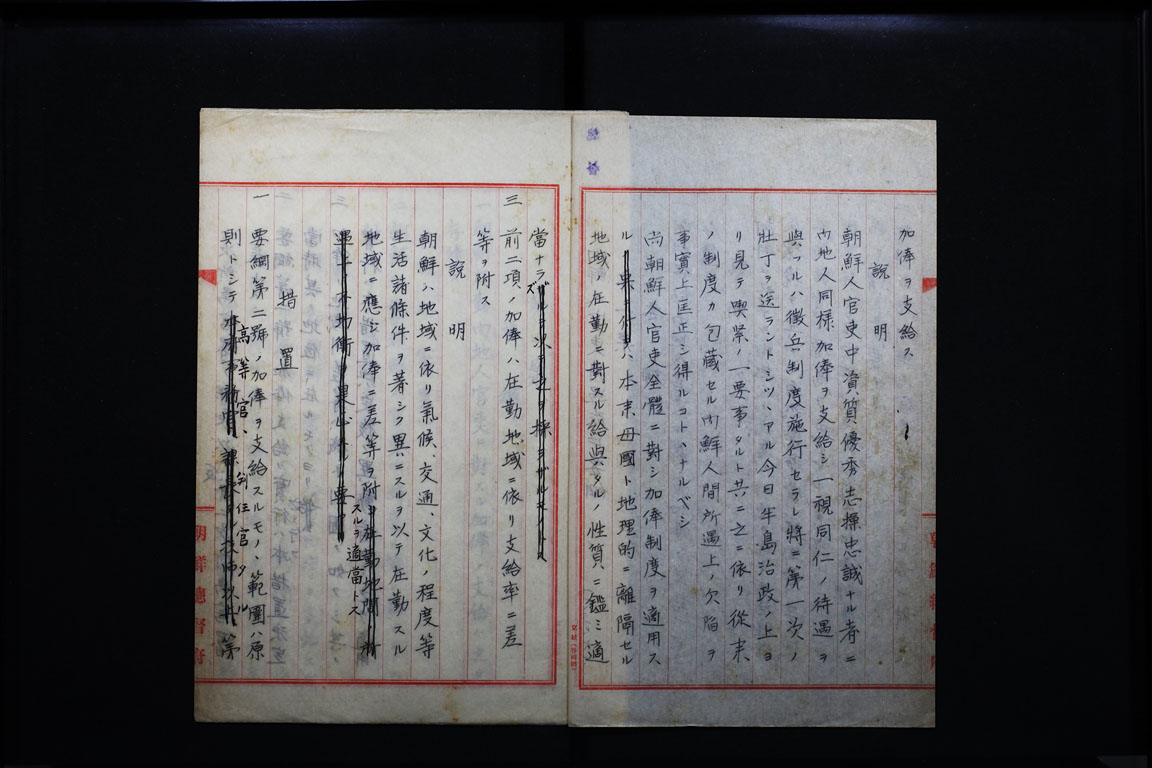 加俸ヲ支給ス
説明
朝鮮人官吏中資質優秀志操忠誠ナル者ニ
内地人同様加俸ヲ支給シ一視同仁ノ待遇ヲ
與フルハ徴兵制度施行セラレ將ニ第一次ノ
壮丁ヲ送ラントシツヽアル今日半島治政ノ上ヨ
リ見テ喫緊ノ一要事タルト共ニ之ニ依リ從来
ノ制度カ包蔵セル内鮮人間所遇上ノ欠陥ヲ
事實上匡正シ得ルコトヽナルベシ
尚朝鮮人官吏全體ニ對シ加俸制度ヲ適用ス
ルハ本来母國ト地理的ニ離隔セル
地域ノ在勤ニ對スル給與タルノ性質ニ鑑ミ適
當ナラズ
三 前二項ノ加俸ハ在勤地域ニ依リ支給率ニ差
等ヲ附ス
説明
朝鮮ハ地域ニ依リ氣候、交通、文化ノ程度等
生活諸條件ヲ著シク異ニスルヲ以テ在勤スル
地域ニ應ジ加俸ニ差等ヲ附
スルヲ適當トス
措置
一 要綱第二號ノ加俸ヲ支給スルモノヽ範圍ハ原
則トシテ高等官、判任官タル
朝鮮總督府